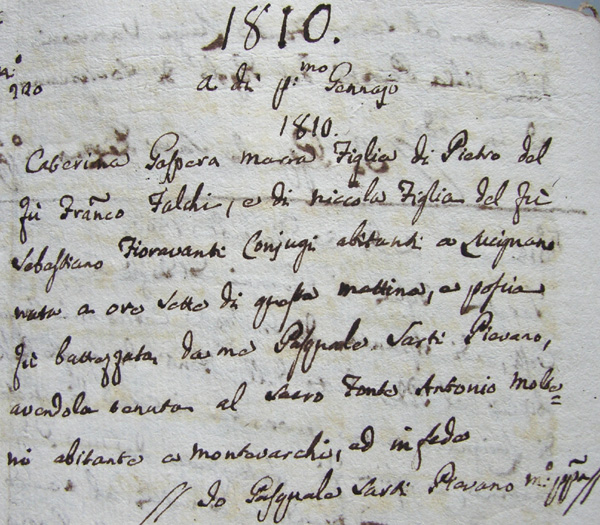 1810.
N.º
220
a dì p:mo Gennajo
1810.
Caterina Gaspera Maria Figlia di Pietro del
fù Franco Falchi, e di Niccola Figlia del fù
Sebastiano Fioravanti Conjugi abitanti a Lucignano
nata a ore sette di questa mattina, e poscia
fù battezzata da me Pasquale Sarti Pievano,
avendola tenuta al Sacro Fonte Antonio Mole=
ni abitante a Montevarchi, ed in fede
// Io Pasquale Sarti Pievano m:º ppa //